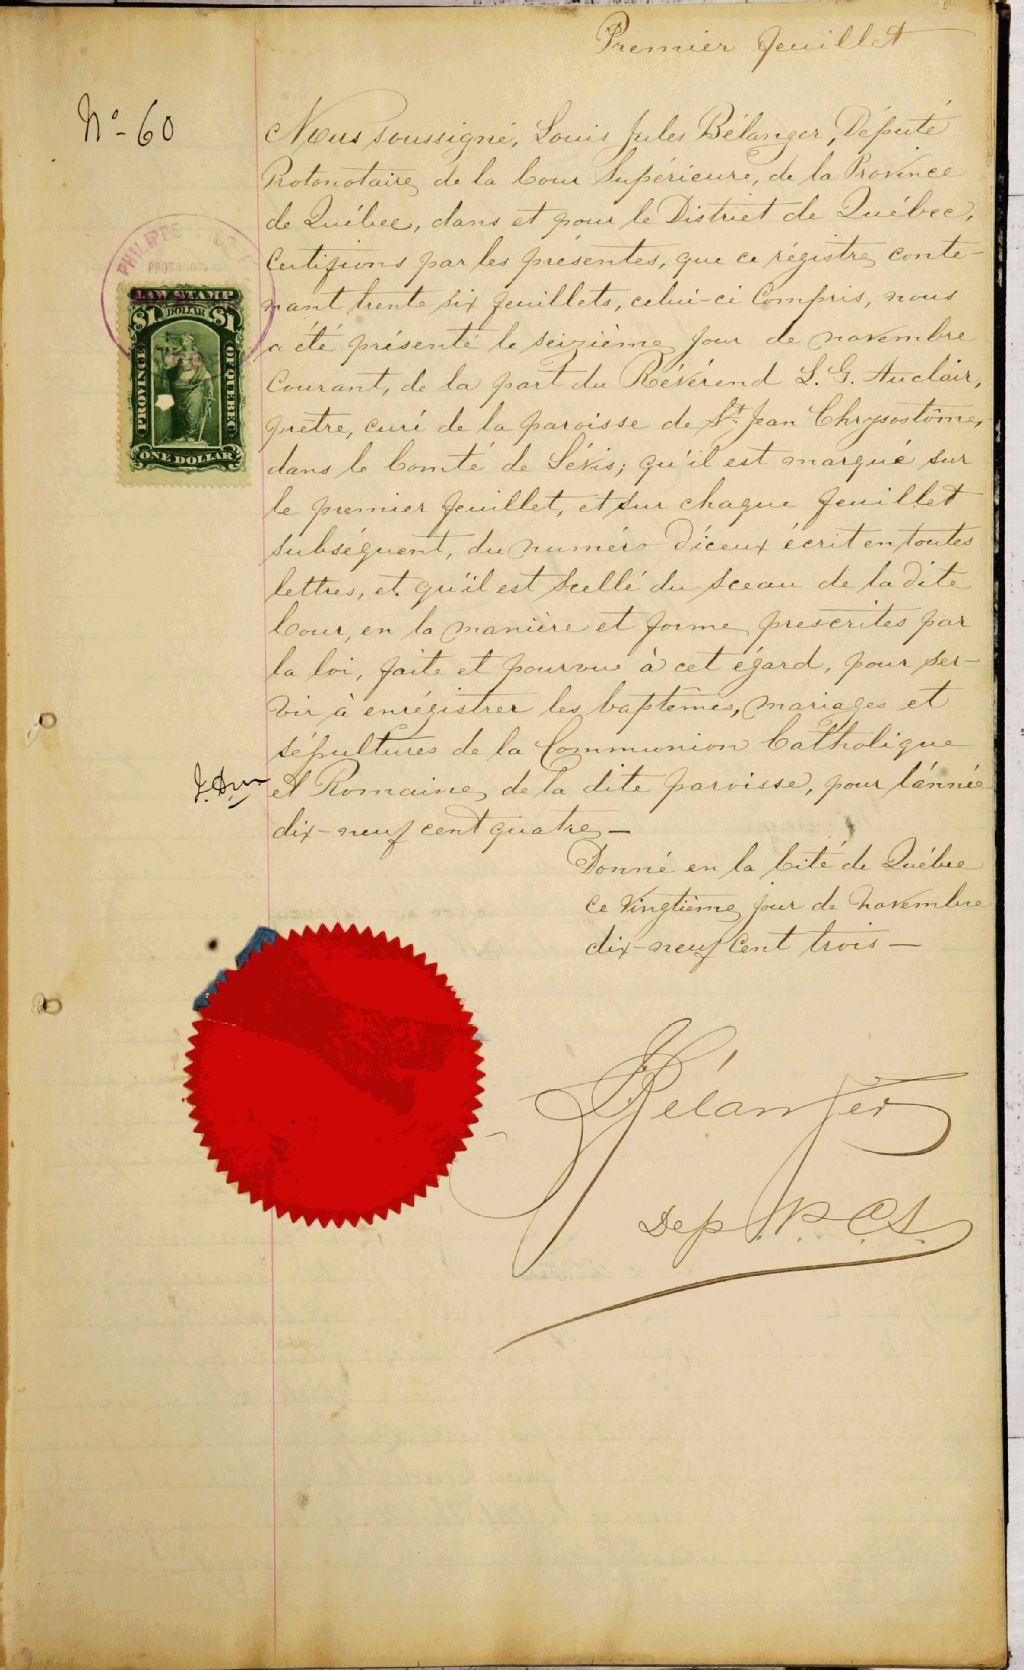 Premier feuillet
No- 60
Nous soussigné, Louis Jules Bélanger, Député
Protonotaire, de la Cour Supérieure, de la Province
de Québec, dans et pour le District de Québec,
Certifions par les présentes, que ce régistre, conte-
nant trente six feuillets, celui-ci Compris, nous
a été présenté le seizième jour de novembre
Courant, de la part du Révérend L. G. Auclair,
prêtre, curé de la paroisse de St. Jean Chrysostôme,
dans le Comté de Lévis; qu'il est marqué sur
le premier feuillet, et sur chaque feuillet
subséquent, du numéro d'iceux écrit en toutes
lettres, et qu'il est scellé du sceau de la dite
Cour, en la manière et forme, prescrites par
la loi, faite et pourvue à cet égard, pour ser-
vir à enrégistrer les baptêmes, mariages et
sépultures de la Communion Catholique
et Romaine, de la dite paroisse, pour l'année
dix-neuf cent quatre,-
Donné en la Cité de Québec
ce vingtième, jour de novembre
dix-neuf Cent trois-
PHILIPPE
PROTONOT
LAW STAMP
$1 DOLLAR $1
PROVINCE
OF QUEBEC
ONE DOLLAR
Bélanger
Dep. P. C. S.